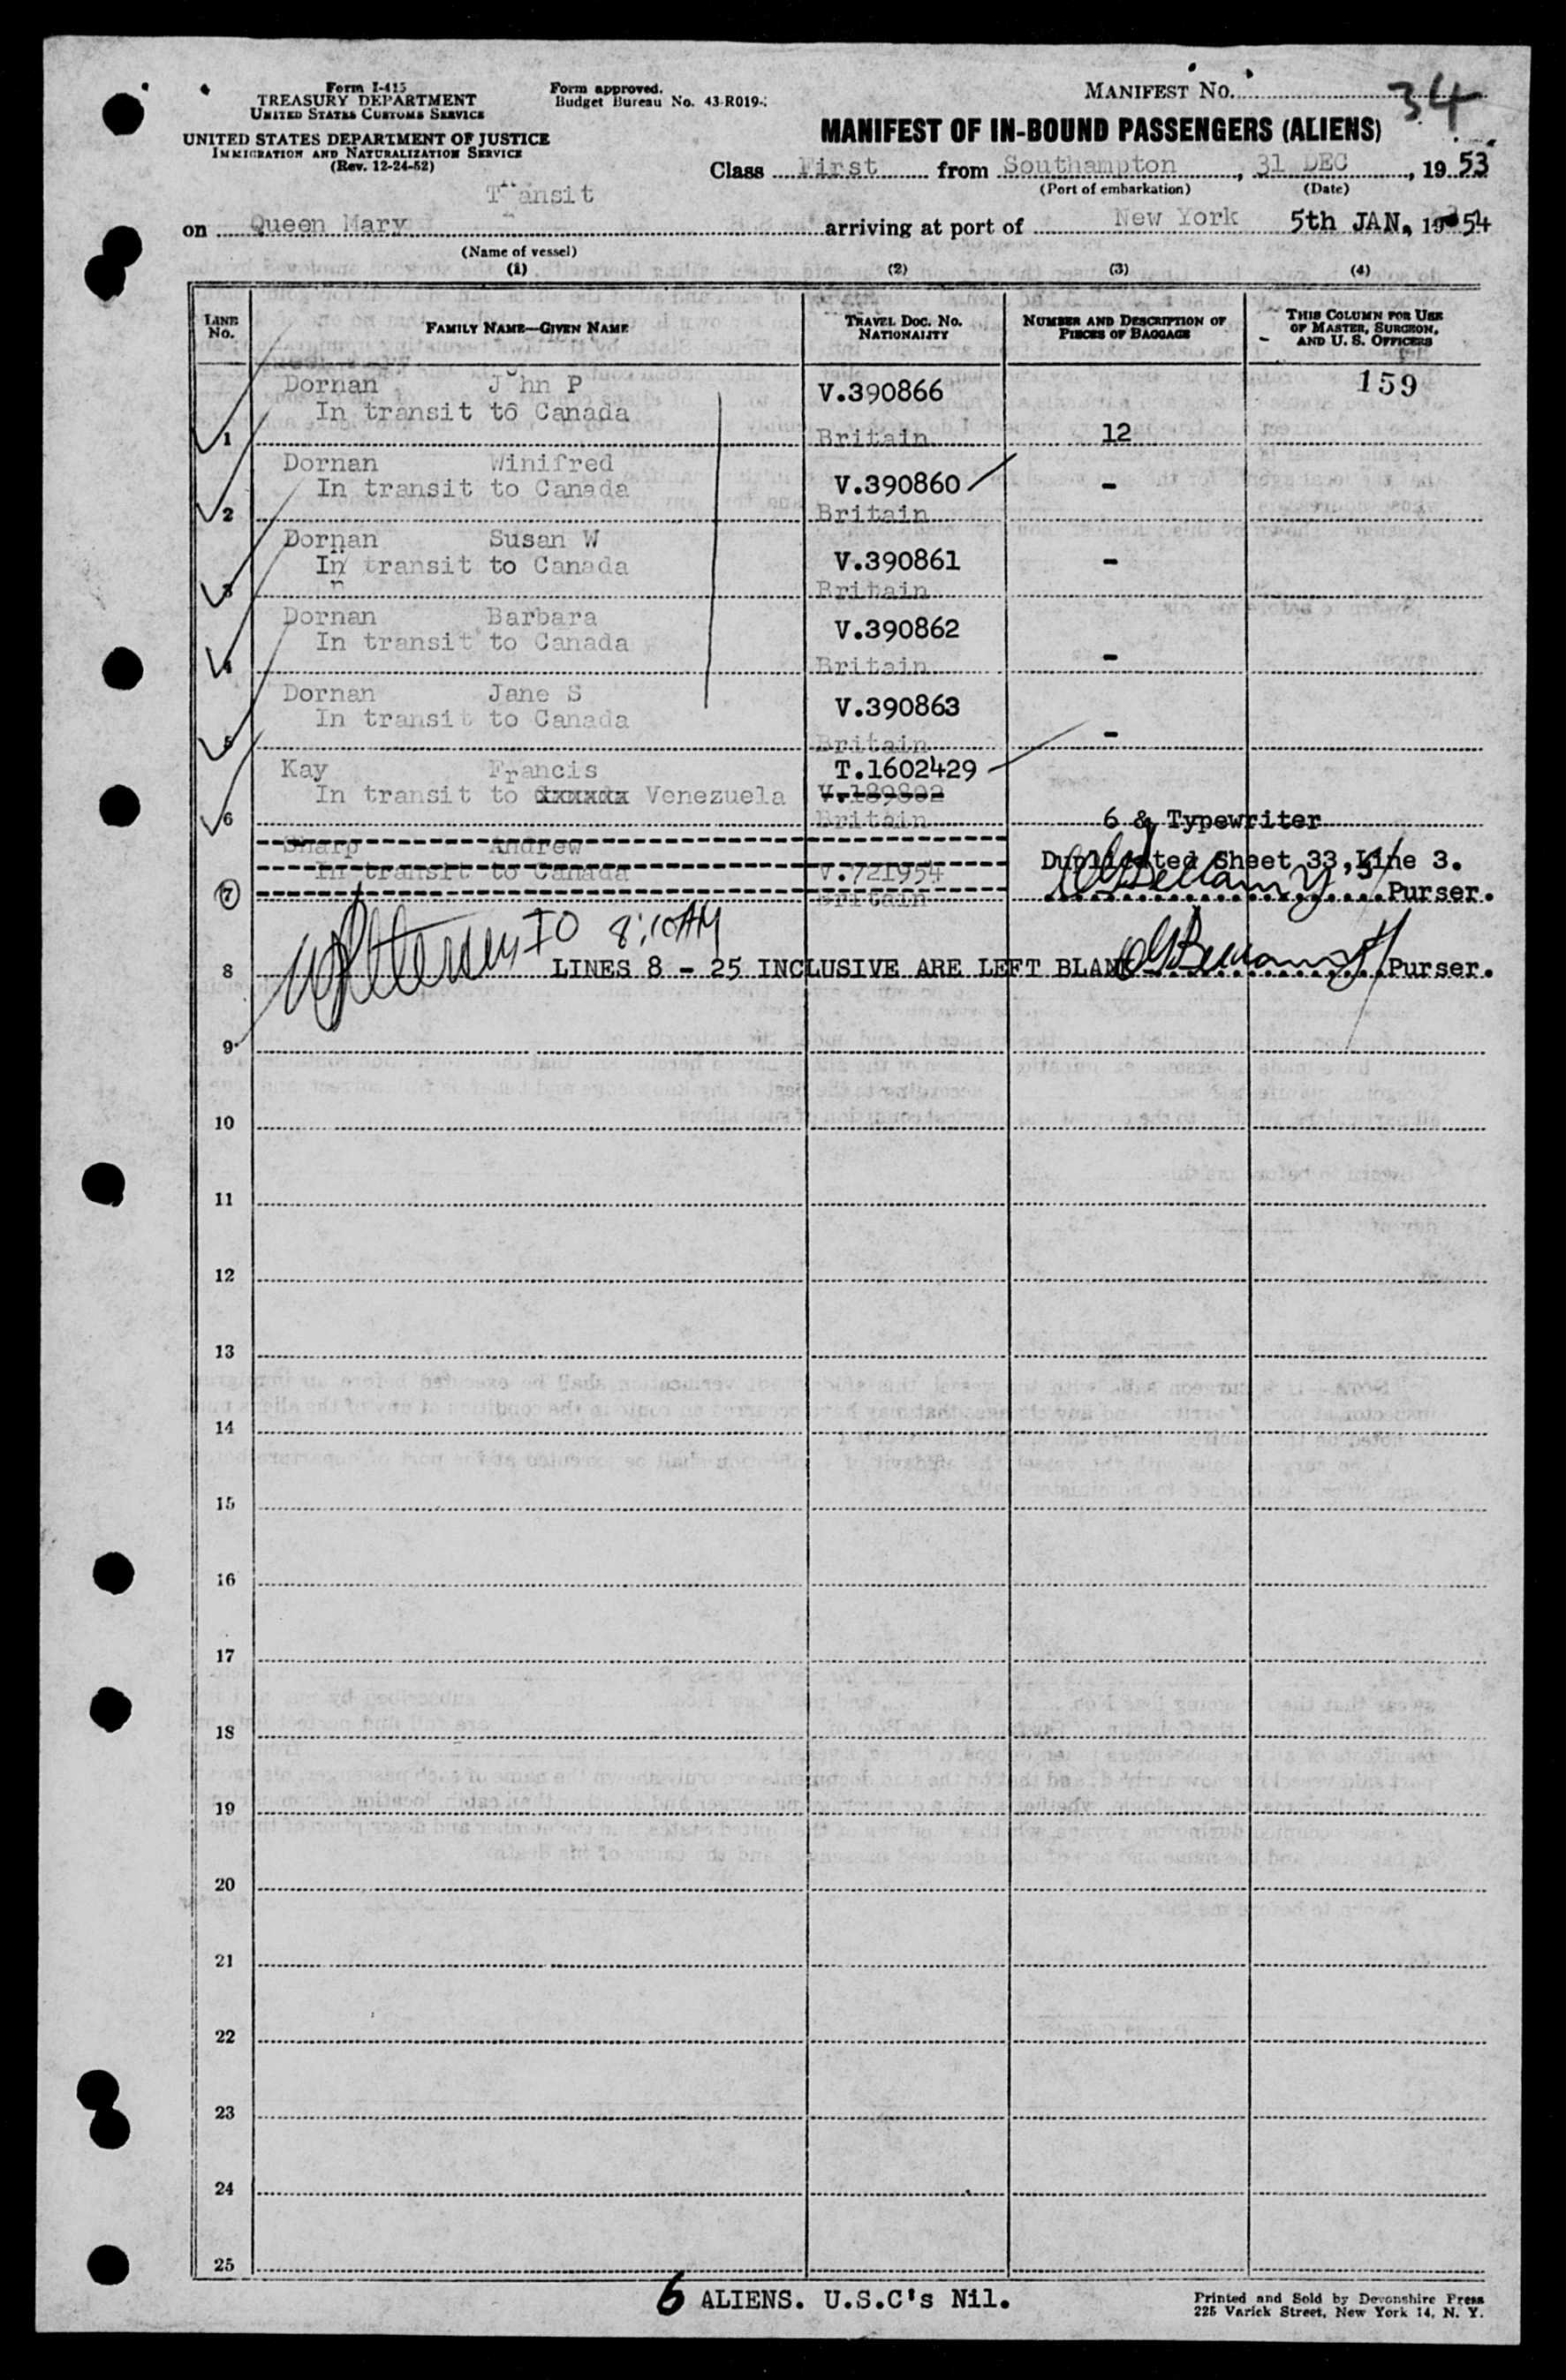 Form I-415
TREASURY DEPARTMENT
UNITED STATES CUSTOMS SERVICE
UNITED STATES DEPARTMENT OF JUSTICE
IMMIGRATION AND NATURALIZATION SERVICE
(Rev. 12-24-52)
Form approved.
Budget Bureau No. 43-R019-
MANIFEST No. 34
MANIFEST OF IN-BOUND PASSENGERS (ALIENS)
Class First from Southampton, 31 DEC, 1953
(Port of embarkation) (Date)
Transit
on Queen Mary arriving at port of New York 5th JAN, 1954
(Name of vessel)
(1) (2) (3) (4)
LINE No. FAMILY NAME—GIVEN NAME TRAVEL DOC. No. NATIONALITY NUMBER AND DESCRIPTION OF PIECES OF BAGGAGE THIS COLUMN FOR USE OF MASTER, SURGEON, AND U. S. OFFICERS
Dornan John P V.390866 159
In transit to Canada
1 Britain 12
Dornan Winifred
In transit to Canada V.390860 -
2 Britain
Dornan Susan W
In transit to Canada V.390861 -
3 Britain
Dornan Barbara
In transit to Canada V.390862
4 Britain -
Dornan Jane S
In transit to Canada V.390863
5 Britain -
Kay Francis T.1602429
In transit to xxxxxx Venezuela V.189802
6 Britain 6 & Typewriter
Sharp Andrew
In transit to Canada V.721954 Duplicated Sheet 33, Line 3.
7 Britain Purser.
IO 8:10AM
8 LINES 8 - 25 INCLUSIVE ARE LEFT BLANK Purser.
9
10
11
12
13
14
15
16
17
18
19
20
21
22
23
24
25
6 ALIENS. U.S.C's Nil.
Printed and Sold by Devonshire Press
225 Varick Street, New York 14, N. Y.